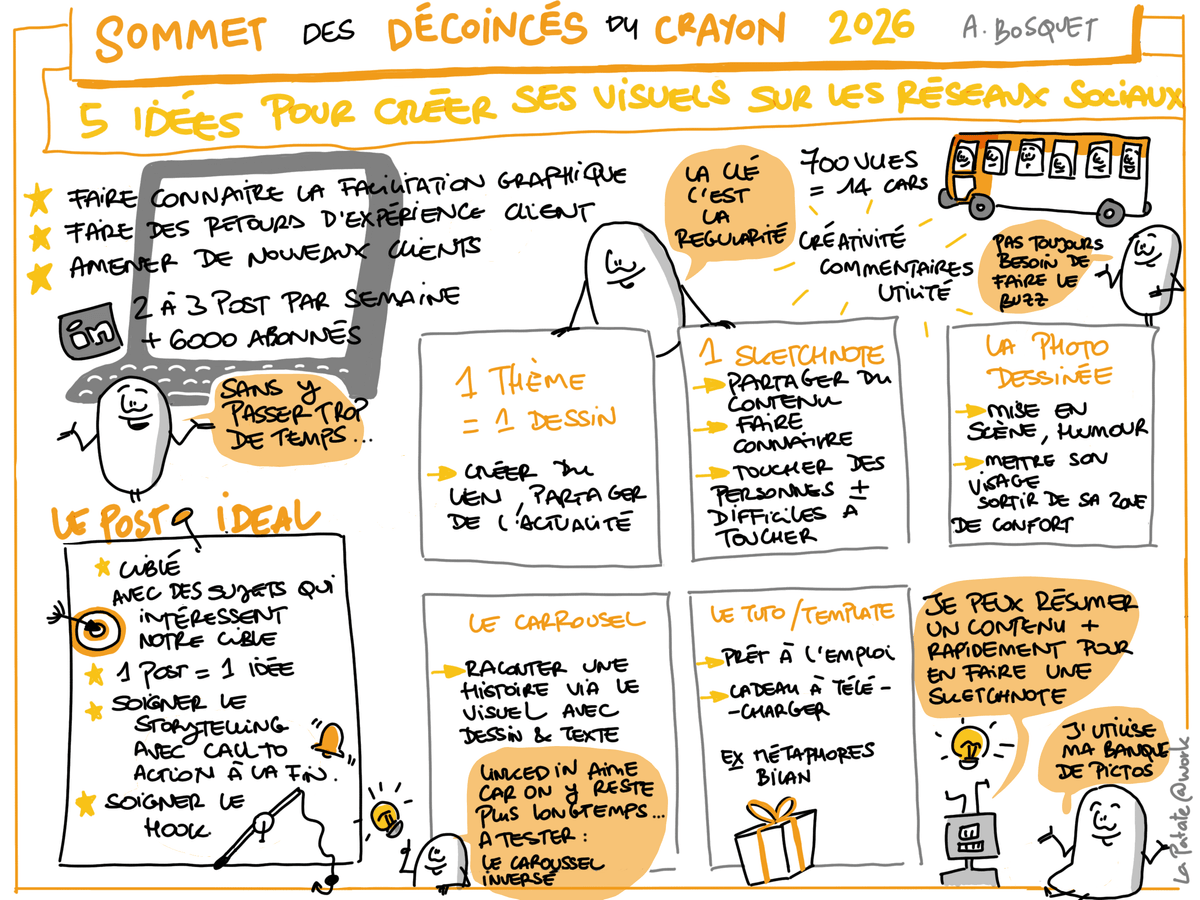 SOMMET DES DÉCOINCÉS DU CRAYON 2026 A. BOSQUET
5 IDÉES POUR CRÉER SES VISUELS SUR LES RÉSEAUX SOCIAUX
FAIRE CONNAITRE LA FACILITATION GRAPHIQUE
FAIRE DES RETOURS D'EXPÉRIENCE CLIENT
AMENER DE NOUVEAUX CLIENTS
in
2 À 3 POST PAR SEMAINE
+ 6000 ABONNÉS
SANS Y
PASSER TROP
DE TEMPS...
LA CLÉ
C'EST
LA
REGULARITÉ
700 VUES
= 14 CARS
CRÉATIVITÉ
COMMENTAIRES
UTILITÉ
PAS TOUJOURS
BESOIN DE
FAIRE LE
BUZZ
LE POST IDEAL
CIBLÉ
AVEC DES SUJETS QUI
INTÉRESSENT
NOTRE CIBLE
1 POST = 1 IDÉE
SOIGNER LE
STORYTELLING
AVEC CALL TO
ACTION À LA FIN.
SOIGNER LE
HOOK
1 THÈME
= 1 DESSIN
CRÉER DU
LIEN, PARTAGER
DE L'ACTUALITÉ
1 SKETCHNOTE
PARTAGER DU
CONTENU
FAIRE
CONNAITRE
TOUCHER DES
PERSONNES ±
DIFFICILES A
TOUCHER
LA PHOTO
DESSINÉE
MISE EN
SCÈNE, HUMOUR
METTRE SON
VISAGE
SORTIR DE SA ZONE
DE CONFORT
LE CARROUSEL
RACONTER UNE
HISTOIRE VIA LE
VISUEL AVEC
DESSIN & TEXTE
LINKED IN AIME
CAR ON Y RESTE
PLUS LONGTEMPS...
A TESTER :
LE CAROUSSEL
INVERSÉ
LE TUTO / TEMPLATE
PRÊT À L'EMPLOI
CADEAU À TÉLÉ-
-CHARGER
EX MÉTAPHORES
BILAN
JE PEUX RÉSUMER
UN CONTENU +
RAPIDEMENT POUR
EN FAIRE UNE
SKETCHNOTE
J'UTILISE
MA BANQUE
DE PICTOS
La Patate@work